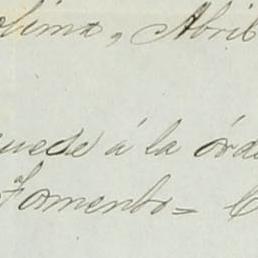 olima, Abril
uese á la órde
Fomento= C